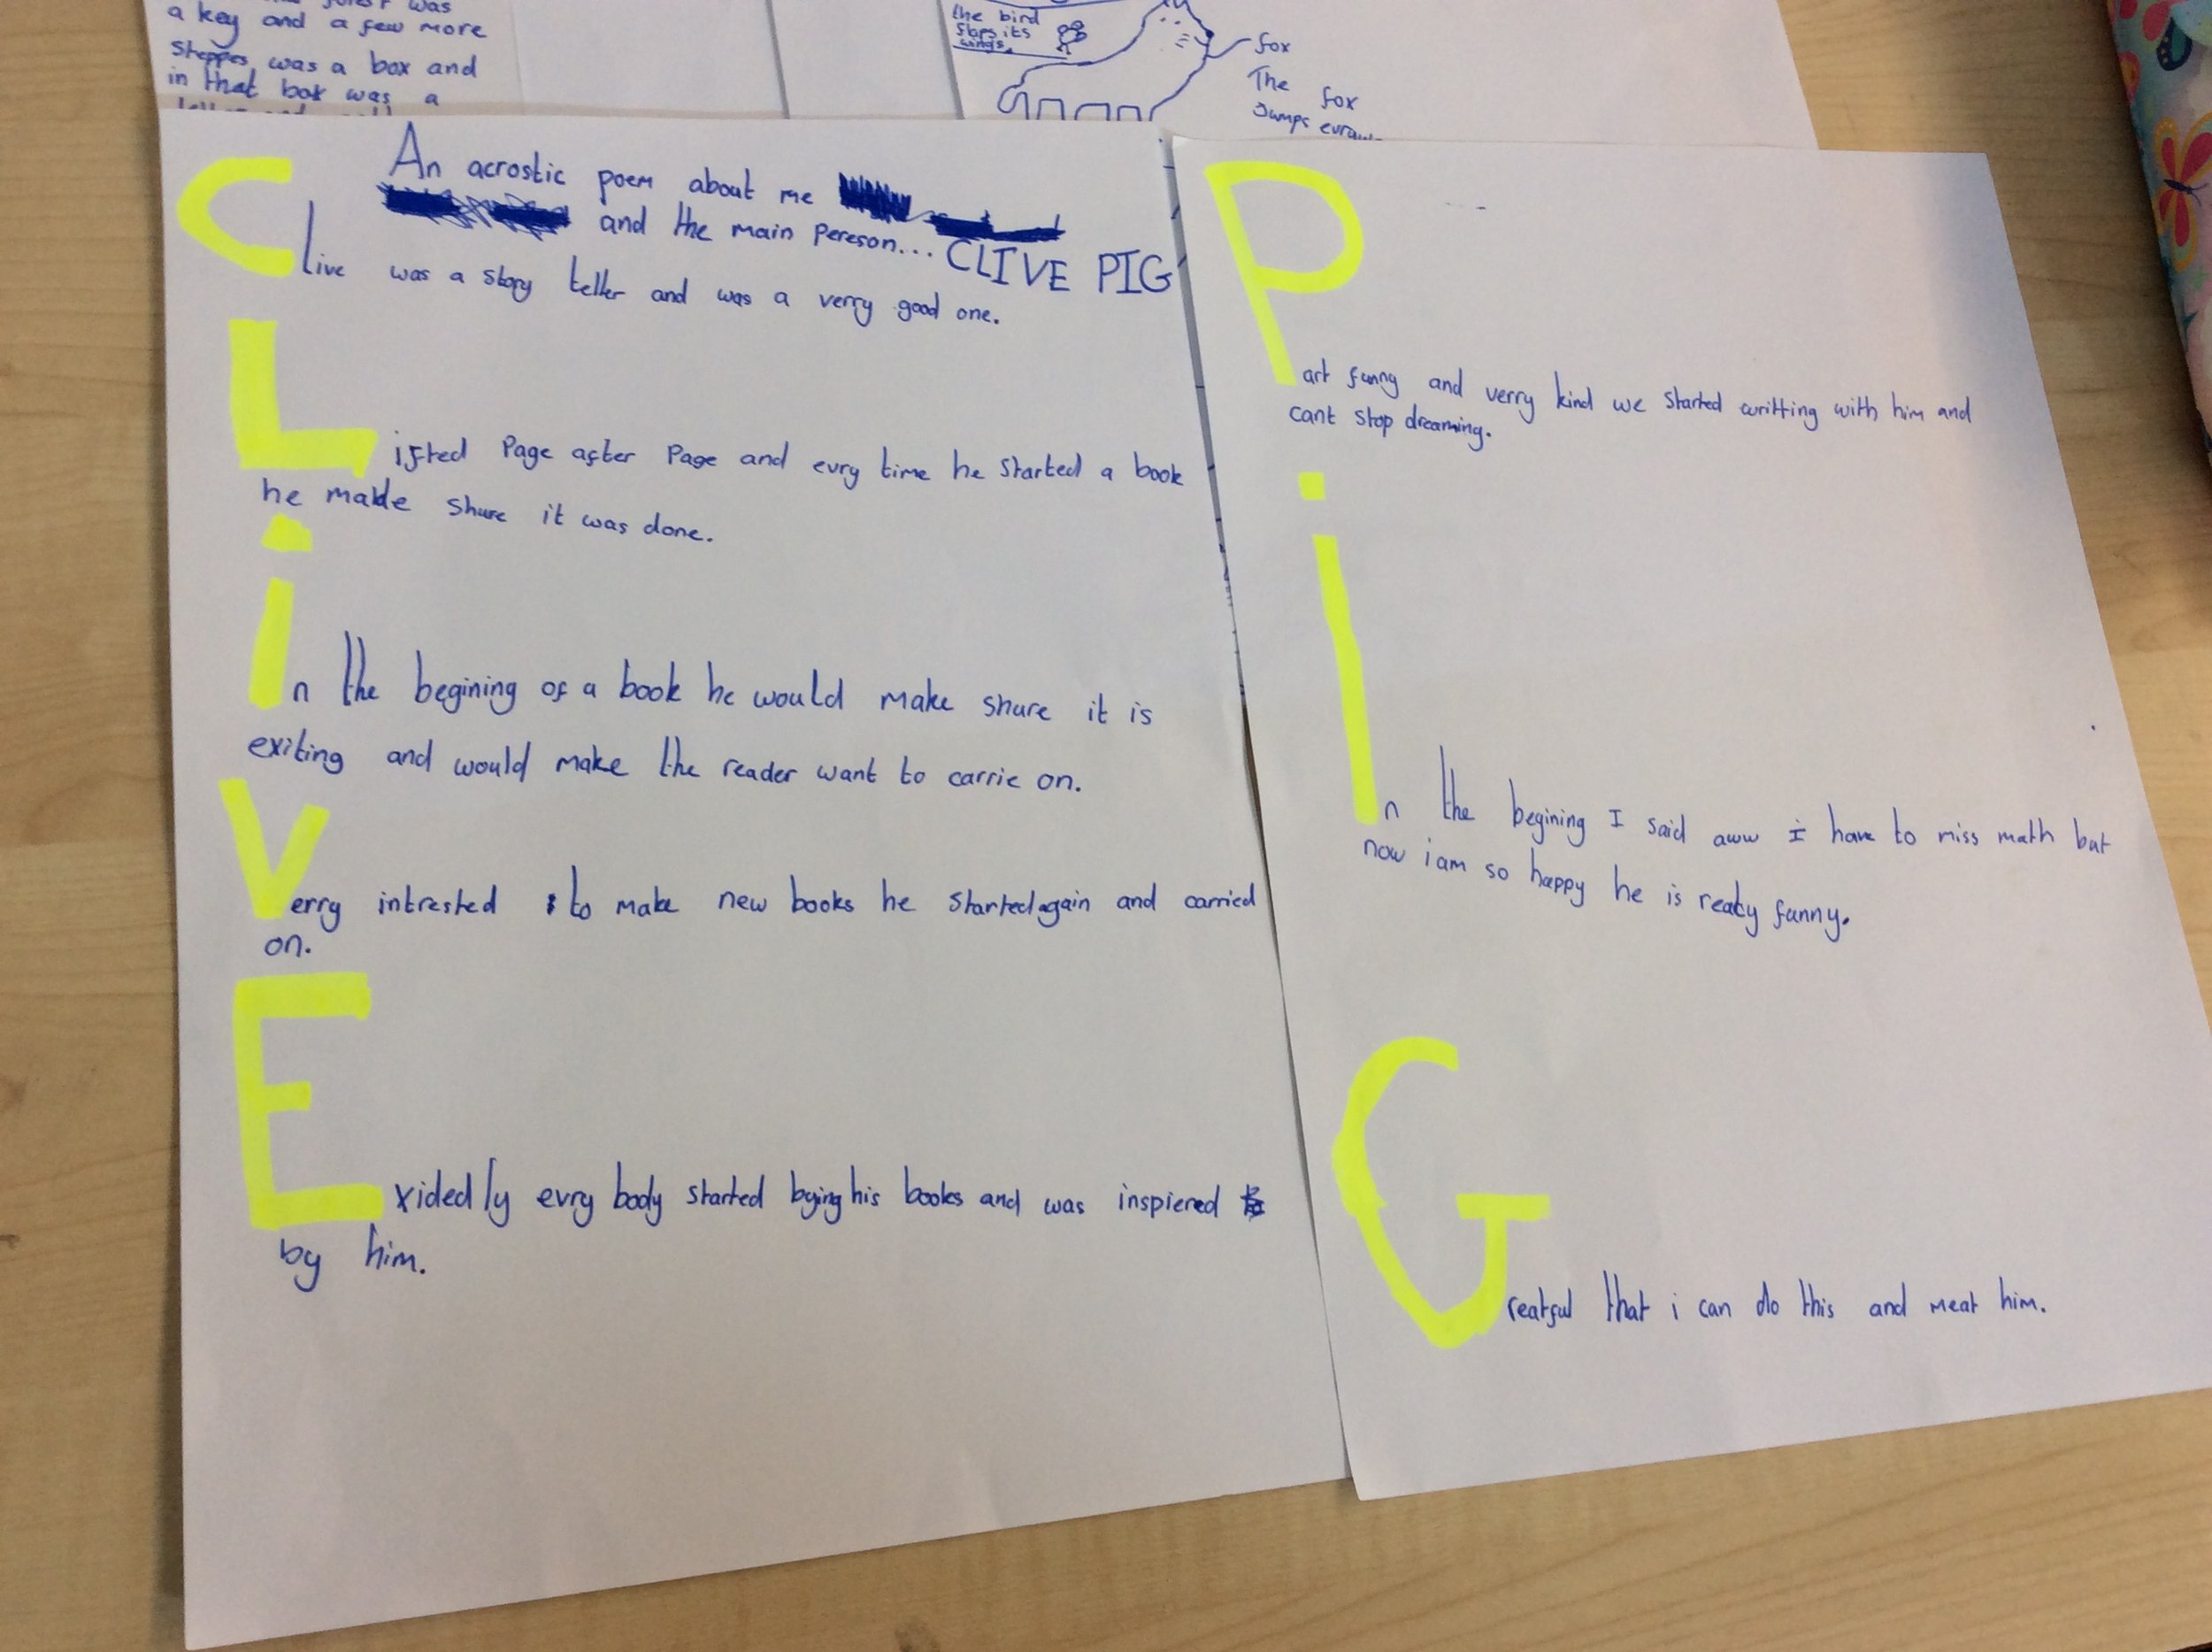 a key and a few more
steppes was a box and
in that box was a
the bird
flaps its
wings.
fox
The fox
Jumps
An acrostic poem about me
and the main pereson... CLIVE PIG
Clive was a story teller and was a verry good one.
Lifted Page after Page and evry time he started a book
he made shure it was done.
in the begining of a book he would make shure it is
exiting and would make the reader want to carrie on.
Verry intrested to make new books he started again and carried
on.
Exidedly evry body started bying his books and was inspiered
by him.
Part funny and verry kind we started writting with him and
cant stop dreaming.
in the begining I said aww i have to miss math but
now i am so happy he is realy funny.
Greatful that i can do this and meat him.